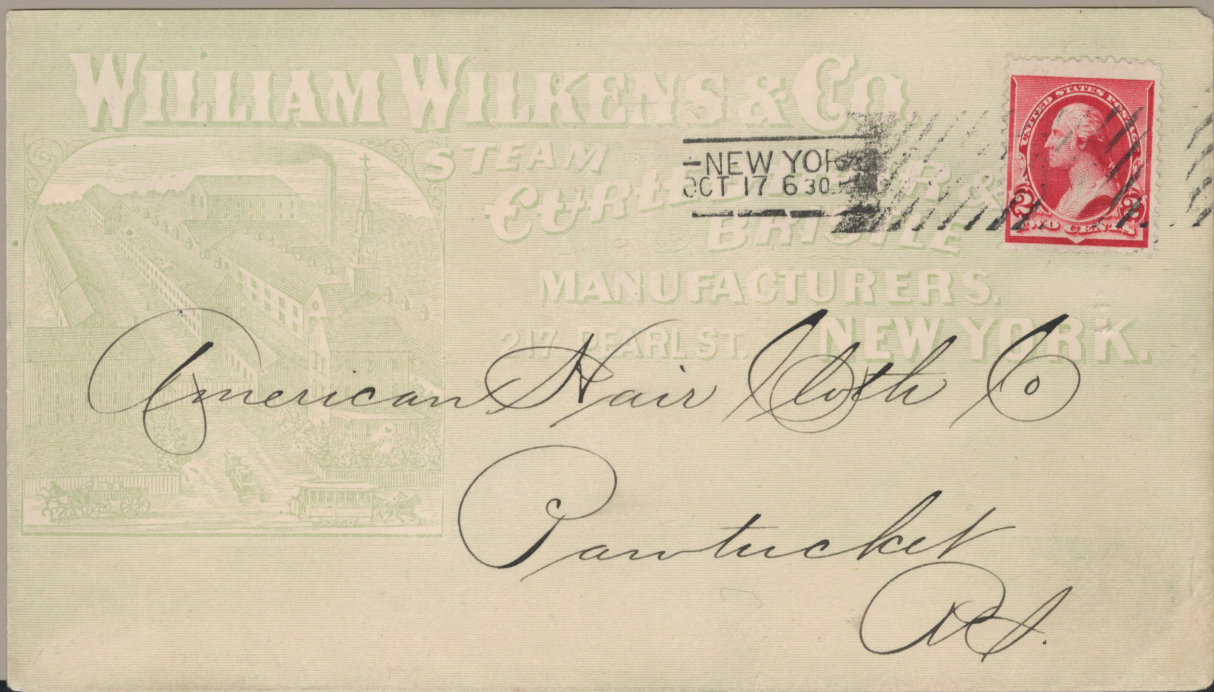 WILLIAM WILKENS & CO
STEAM
CURLED HAIR &
BRISTLE
MANUFACTURERS.
217 PEARL ST. NEW YORK.
NEW YOR
OCT 17 6 30
UNITED STATES POSTAGE
2 2
TWO CENTS
American Hair Cloth Co
Pawtucket
R.I.